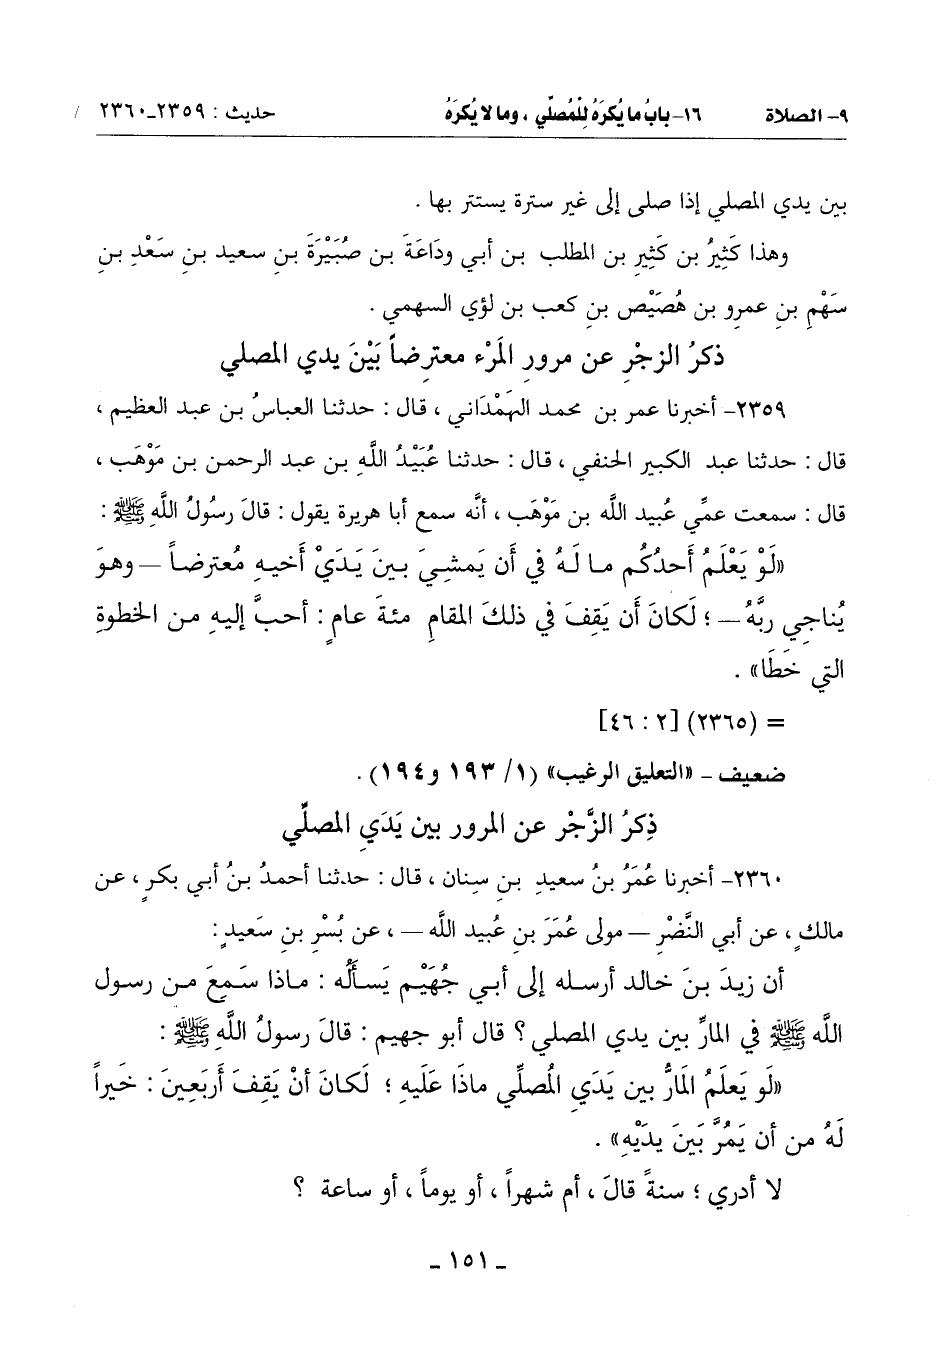 ٩- الصلاة ١٦- بابُ ما يُكرَهُ لِلْمُصلّي ، وما لا يُكرَهُ حديث : ٢٣٥٩ـ٢٣٦٠ /
بين يدي المصلي إذا صلى إلى غير سترة يستتر بها .
وهذا كَثِيرُ بن كَثِيرِ بن المطلب بن أبي ودَاعَةَ بن صُبَيْرَةَ بنِ سعيد بنِ سَعْدِ بنِ
سَهْمِ بنِ عمرو بن هُصَيْصِ بنِ كعب بن لؤي السهمي .
ذكرُ الزجْرِ عن مرور المَرْء معترِضاً بَيْنَ يدي المصلي
٢٣٥٩- أخبرنا عمر بن محمد الهَمْدَاني ، قال : حدثنا العباسُ بن عبد العظيم ،
قال : حدثنا عبد الكبير الحنفي ، قال : حدثنا عُبَيْدُ اللَّهِ بن عبد الرحمن بن مَوْهَب ،
قال : سمعت عمِّي عُبيد اللَّه بن مَوْهَب ، أنَّه سمع أبا هريرة يقول : قالَ رسُولُ اللَّهِ ﷺ :
«لَوْ يَعْلَمُ أَحدُكُم ما لَهُ في أَن يَمشِيَ بينَ يَدَيْ أَخيهِ مُعترضاً – وهوَ
يُناجِي ربَّهُ – ؛ لَكانَ أَن يَقِفَ في ذلكَ المقامِ مئةَ عامٍ : أحبَّ إليهِ من الخطوةِ
التي خَطَا» .
= (٢٣٦٥) [٢ : ٤٦]
ضعيف - «التعليق الرغيب» (١/ ١٩٣ و١٩٤) .
ذِكرُ الزَّجْر عن المرور بين يَدَي المصلِّي
٢٣٦٠- أخبرنا عُمَرُ بنُ سعيدِ بنِ سِنان ، قال : حدثنا أحمدُ بنُ أبي بكرٍ ، عن
مالكٍ ، عن أبي النَّضْرِ – مولى عُمَرَ بنِ عُبيد اللَّه – ، عن بُسْرِ بنِ سَعيدٍ :
أن زيدَ بنَ خالد أرسله إلى أبي جُهَيْم يَسأَلُه : ماذا سَمِعَ من رسول
اللَّه ﷺ في المارِّ بين يدي المصلي ؟ قال أبو جهيم : قالَ رسولُ اللَّهِ ﷺ :
«لَو يَعلَمُ المَارُّ بين يَدَيِ المُصلِّي ماذَا عَلَيهِ ؛ لَكانَ أنْ يَقِفَ أَربَعِينَ : خَيراً
لَهُ من أن يَمُرَّ بَينَ يدَيْهِ» .
لا أدري ؛ سنةً قالَ ، أم شهراً ، أو يوماً ، أو ساعة ؟
- ١٥١ -